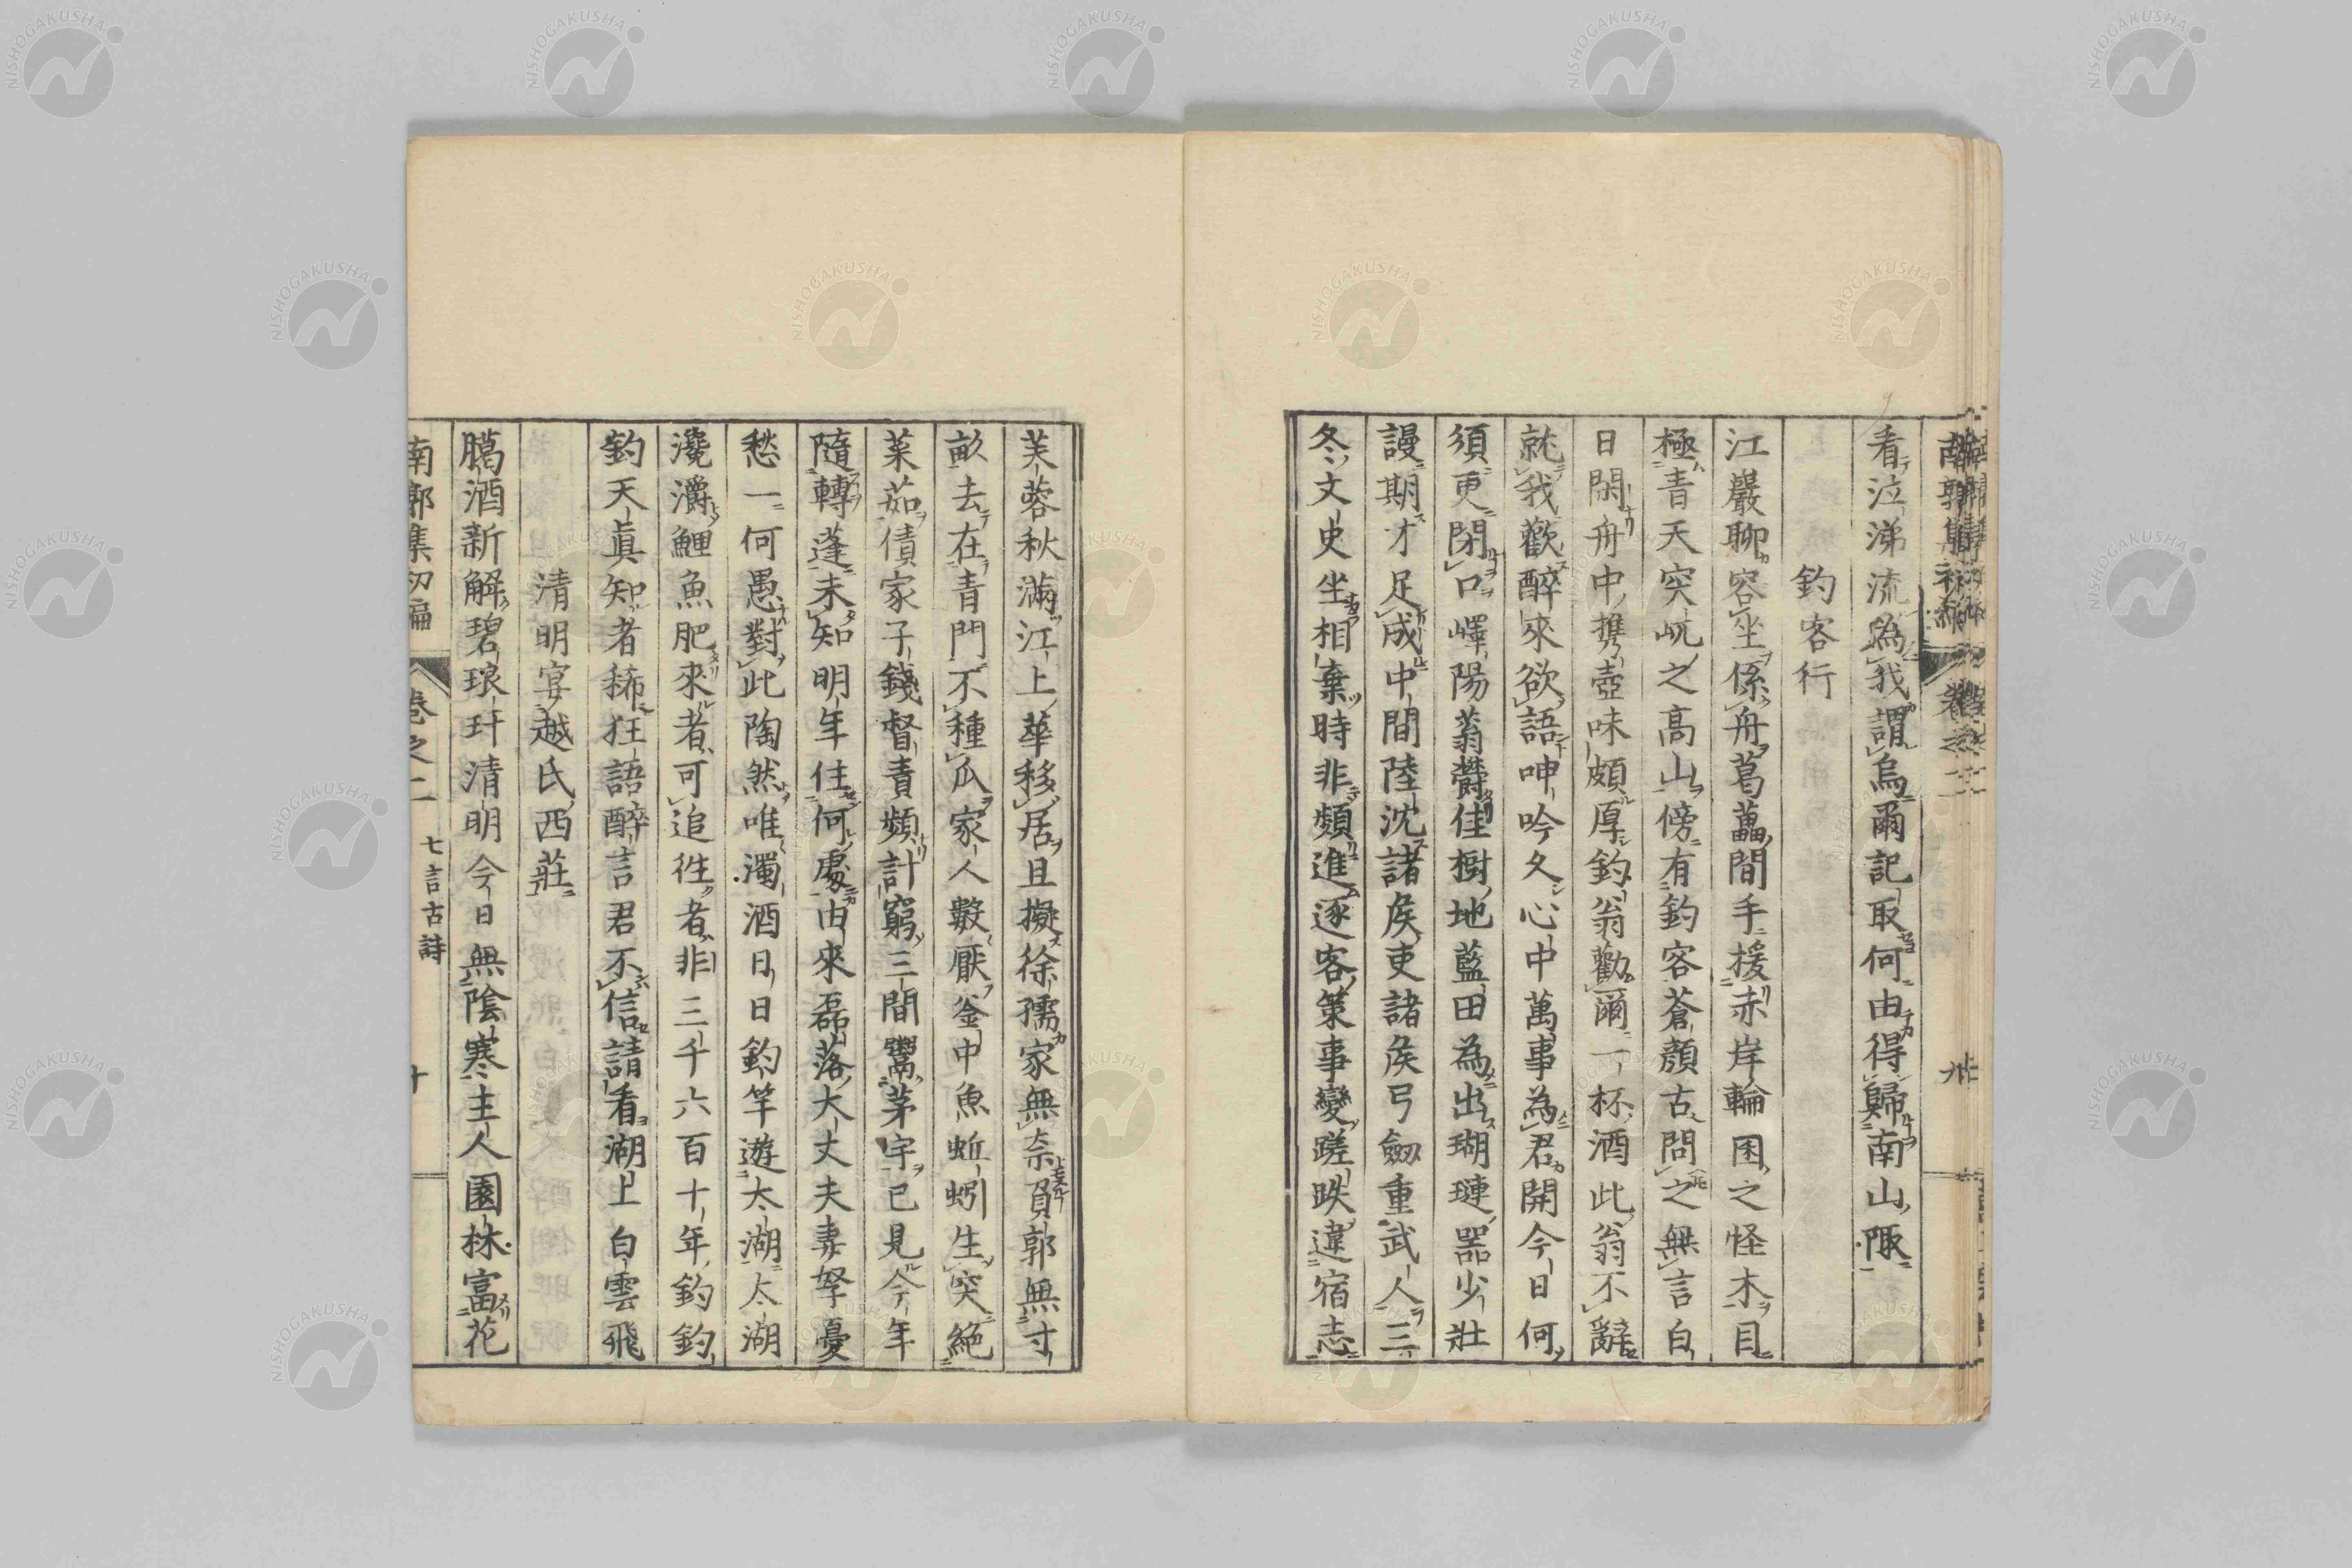 看泣涕流為我謂烏爾記取何由得歸南山陬
釣客行
江巖聊容坐係舟葛藟間手援赤岸輪囷之怪木目
極青天突屼之高山傍有釣客蒼顏古問之無言白
日閑舟中携壺味頗厚釣翁勸爾一杯酒此翁不辭
就我歡醉來欲語呻吟久心中萬事為君開今日何
須更閉口嶧陽蓊欝佳樹地藍田為出瑚璉器少壯
謾期才足成中間陸沈諸侯吏諸侯弓劔重武人三
冬文史坐相棄時非頻進逐客策事變蹉跌違宿志
芙蓉秋滿江上華移居且擬徐孺家無奈負郭無寸
畝去在青門不種瓜家人數厭釜中魚蚯蚓生突絶
菜茹債家子錢督責頻計窮三間鬻茅宇已見今年
隨轉蓬未知明年住何處由來磊落大丈夫妻孥憂
愁一何愚對此陶然唯濁酒日日釣竿遊太湖太湖
瀺灂鯉魚肥來者可追徃者非三千六百十年釣釣
釣天眞知者稀狂語醉言君不信請看湖上白雲飛
清明宴越氏西莊
臈酒新解碧琅玕清明今日無陰寒主人園林富花
南郭集初編 卷之二 七言古詩 十
NISHOGAKUSHA